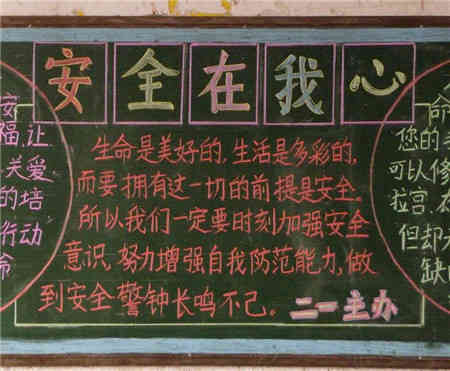 安全在我心
安
福,让
关爱
的培
行动
命
生命是美好的,生活是多彩的,
而要拥有这一切的前提是安全。
所以我们一定要时刻加强安全
意识,努力增强自我防范能力,做
到安全警钟长鸣不己。
二一主办
命
您的
可以修
拉宫,
但却
缺